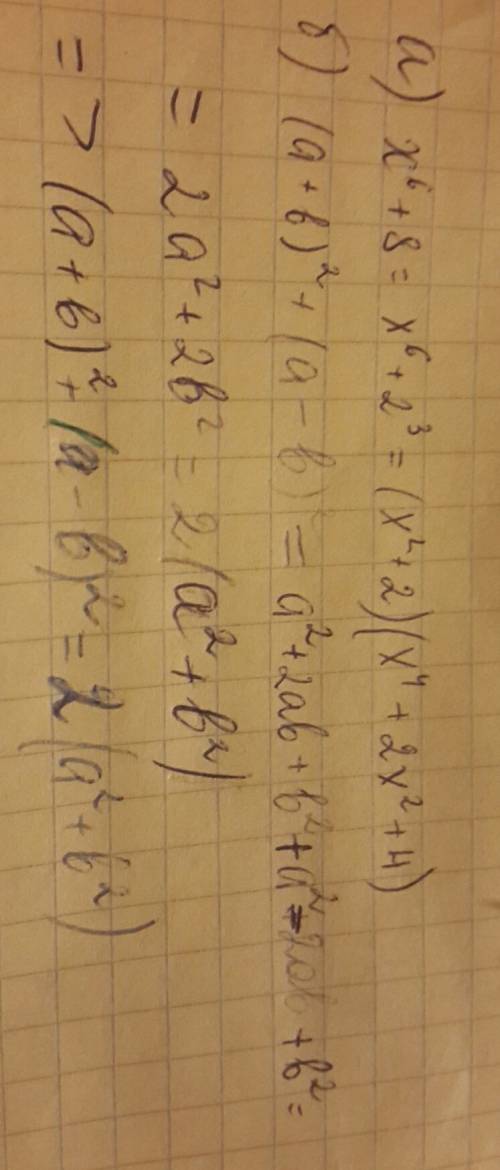 а) x⁶ + 8 = x⁶ + 2³ = (x² + 2)(x⁴ + 2x² + 4)
б) (a + b)² + (a - b)² = a² + 2ab + b² + a² - 2ab + b² =
= 2a² + 2b² = 2(a² + b²)
=> (a + b)² + (a - b)² = 2(a² + b²)